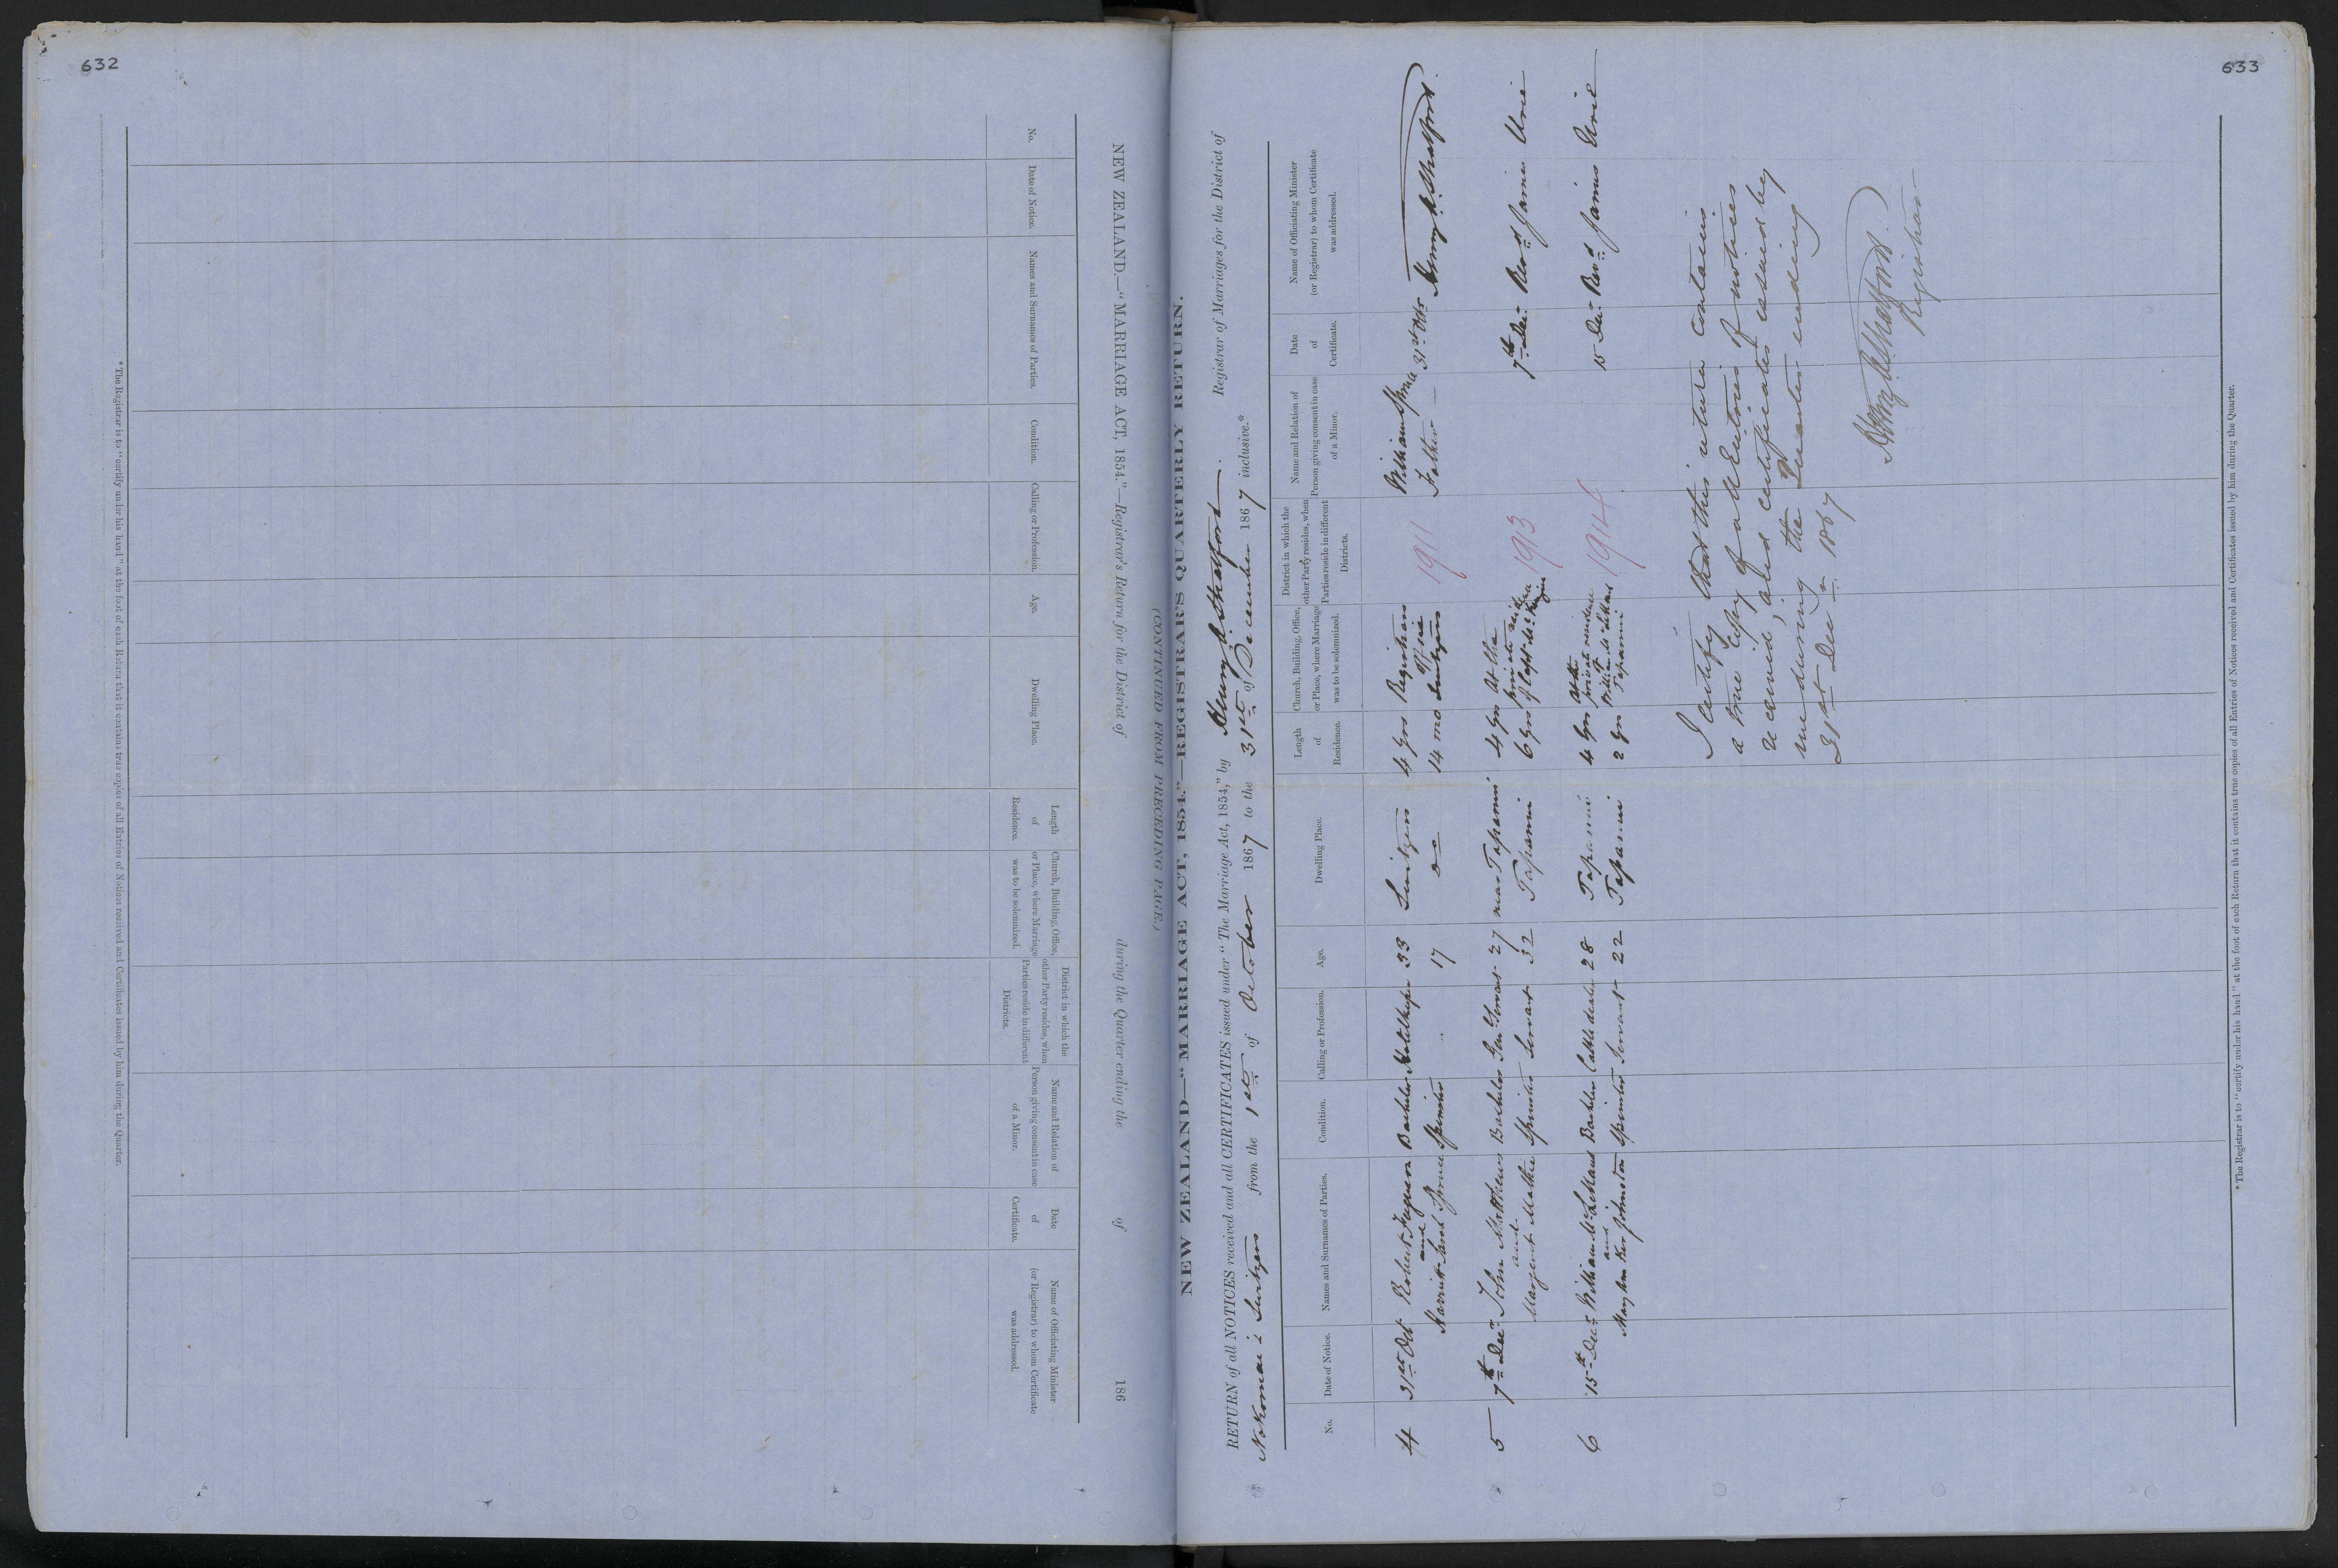 632
NEW ZEALAND.—"MARRIAGE ACT, 1854."—Registrar's Return for the District of during the Quarter ending the of 186
(CONTINUED FROM PRECEDING PAGE.)
No.
Date of Notice.
Names and Surnames of Parties.
Condition.
Calling or Profession.
Age.
Dwelling Place.
Length
of
Residence.
Church, Building, Office,
or Place, where Marriage
was to be solemnized.
District in which the
other Party resides, when
Parties reside in different
Districts.
Name and Relation of
Person giving consent in case
of a Minor.
Date
of
Certificate.
Name of Officiating Minister
(or Registrar) to whom Certificate
was addressed.
* The Registrar is to "certify under his hand" at the foot of each Return that it contains true copies of all Entries of Notices received and Certificates issued by him during the Quarter.
633
NEW ZEALAND—"MARRIAGE ACT, 1854."—REGISTRAR'S QUARTERLY RETURN.
RETURN of all NOTICES received and all CERTIFICATES issued under "The Marriage Act, 1854," by Henry Stratford. Registrar of Marriages for the District of
Nokomai & Switzers from the 1st of October 1867 to the 31st of December 1867 inclusive.*
No.
Date of Notice.
Names and Surnames of Parties.
Condition.
Calling or Profession.
Age.
Dwelling Place.
Length
of
Residence.
Church, Building, Office,
or Place, where Marriage
was to be solemnized.
District in which the
other Party resides, when
Parties reside in different
Districts.
Name and Relation of
Person giving consent in case
of a Minor.
Date
of
Certificate.
Name of Officiating Minister
(or Registrar) to whom Certificate
was addressed.
4 31st Oct Robert Ferguson Bachelor Hotelkeeper 33 Switzers 4 yrs Registrars William Spruce 31st Octr Henry Stratford
and Office
Harriett Sarah Spruce Spinster " 17 do 14 mo Switzers 1911 Father —
5 7th Decr John Matthews Bachelor Gen Servant 27 near Tapanui 4 yrs At the 7th Decr Revd James Urie
and private resid
Margaret Mathie Spinster Servant 32 Tapanui 6 yrs of Capt 1913
6 15th Decr William McLelland Bachelor Cattle dealer 28 Tapanui 4 yrs At the private residence 15 Decr Revd James Urie
and of William McLelland 1914
Mary Ann Ker Johnston Spinster Servant 22 Tapanui 2 yrs Tapanui
I certify that this return contains
a true copy of all Entries of notices
received, and certificates issued by
me during the Quarter ending
31st Decr 1867
Henry Stratford.
Registrar
* The Registrar is to "certify under his hand" at the foot of each Return that it contains true copies of all Entries of Notices received and Certificates issued by him during the Quarter.